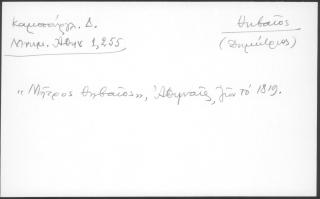 Καμπούρογλ. Δ.
Μνημ. Ἀθην 1,255
Θηβαῖος
(Δημήτριος)
«Μῆτρος Θηβαῖος», Ἀθηναῖος, ζῶν τό 1819.